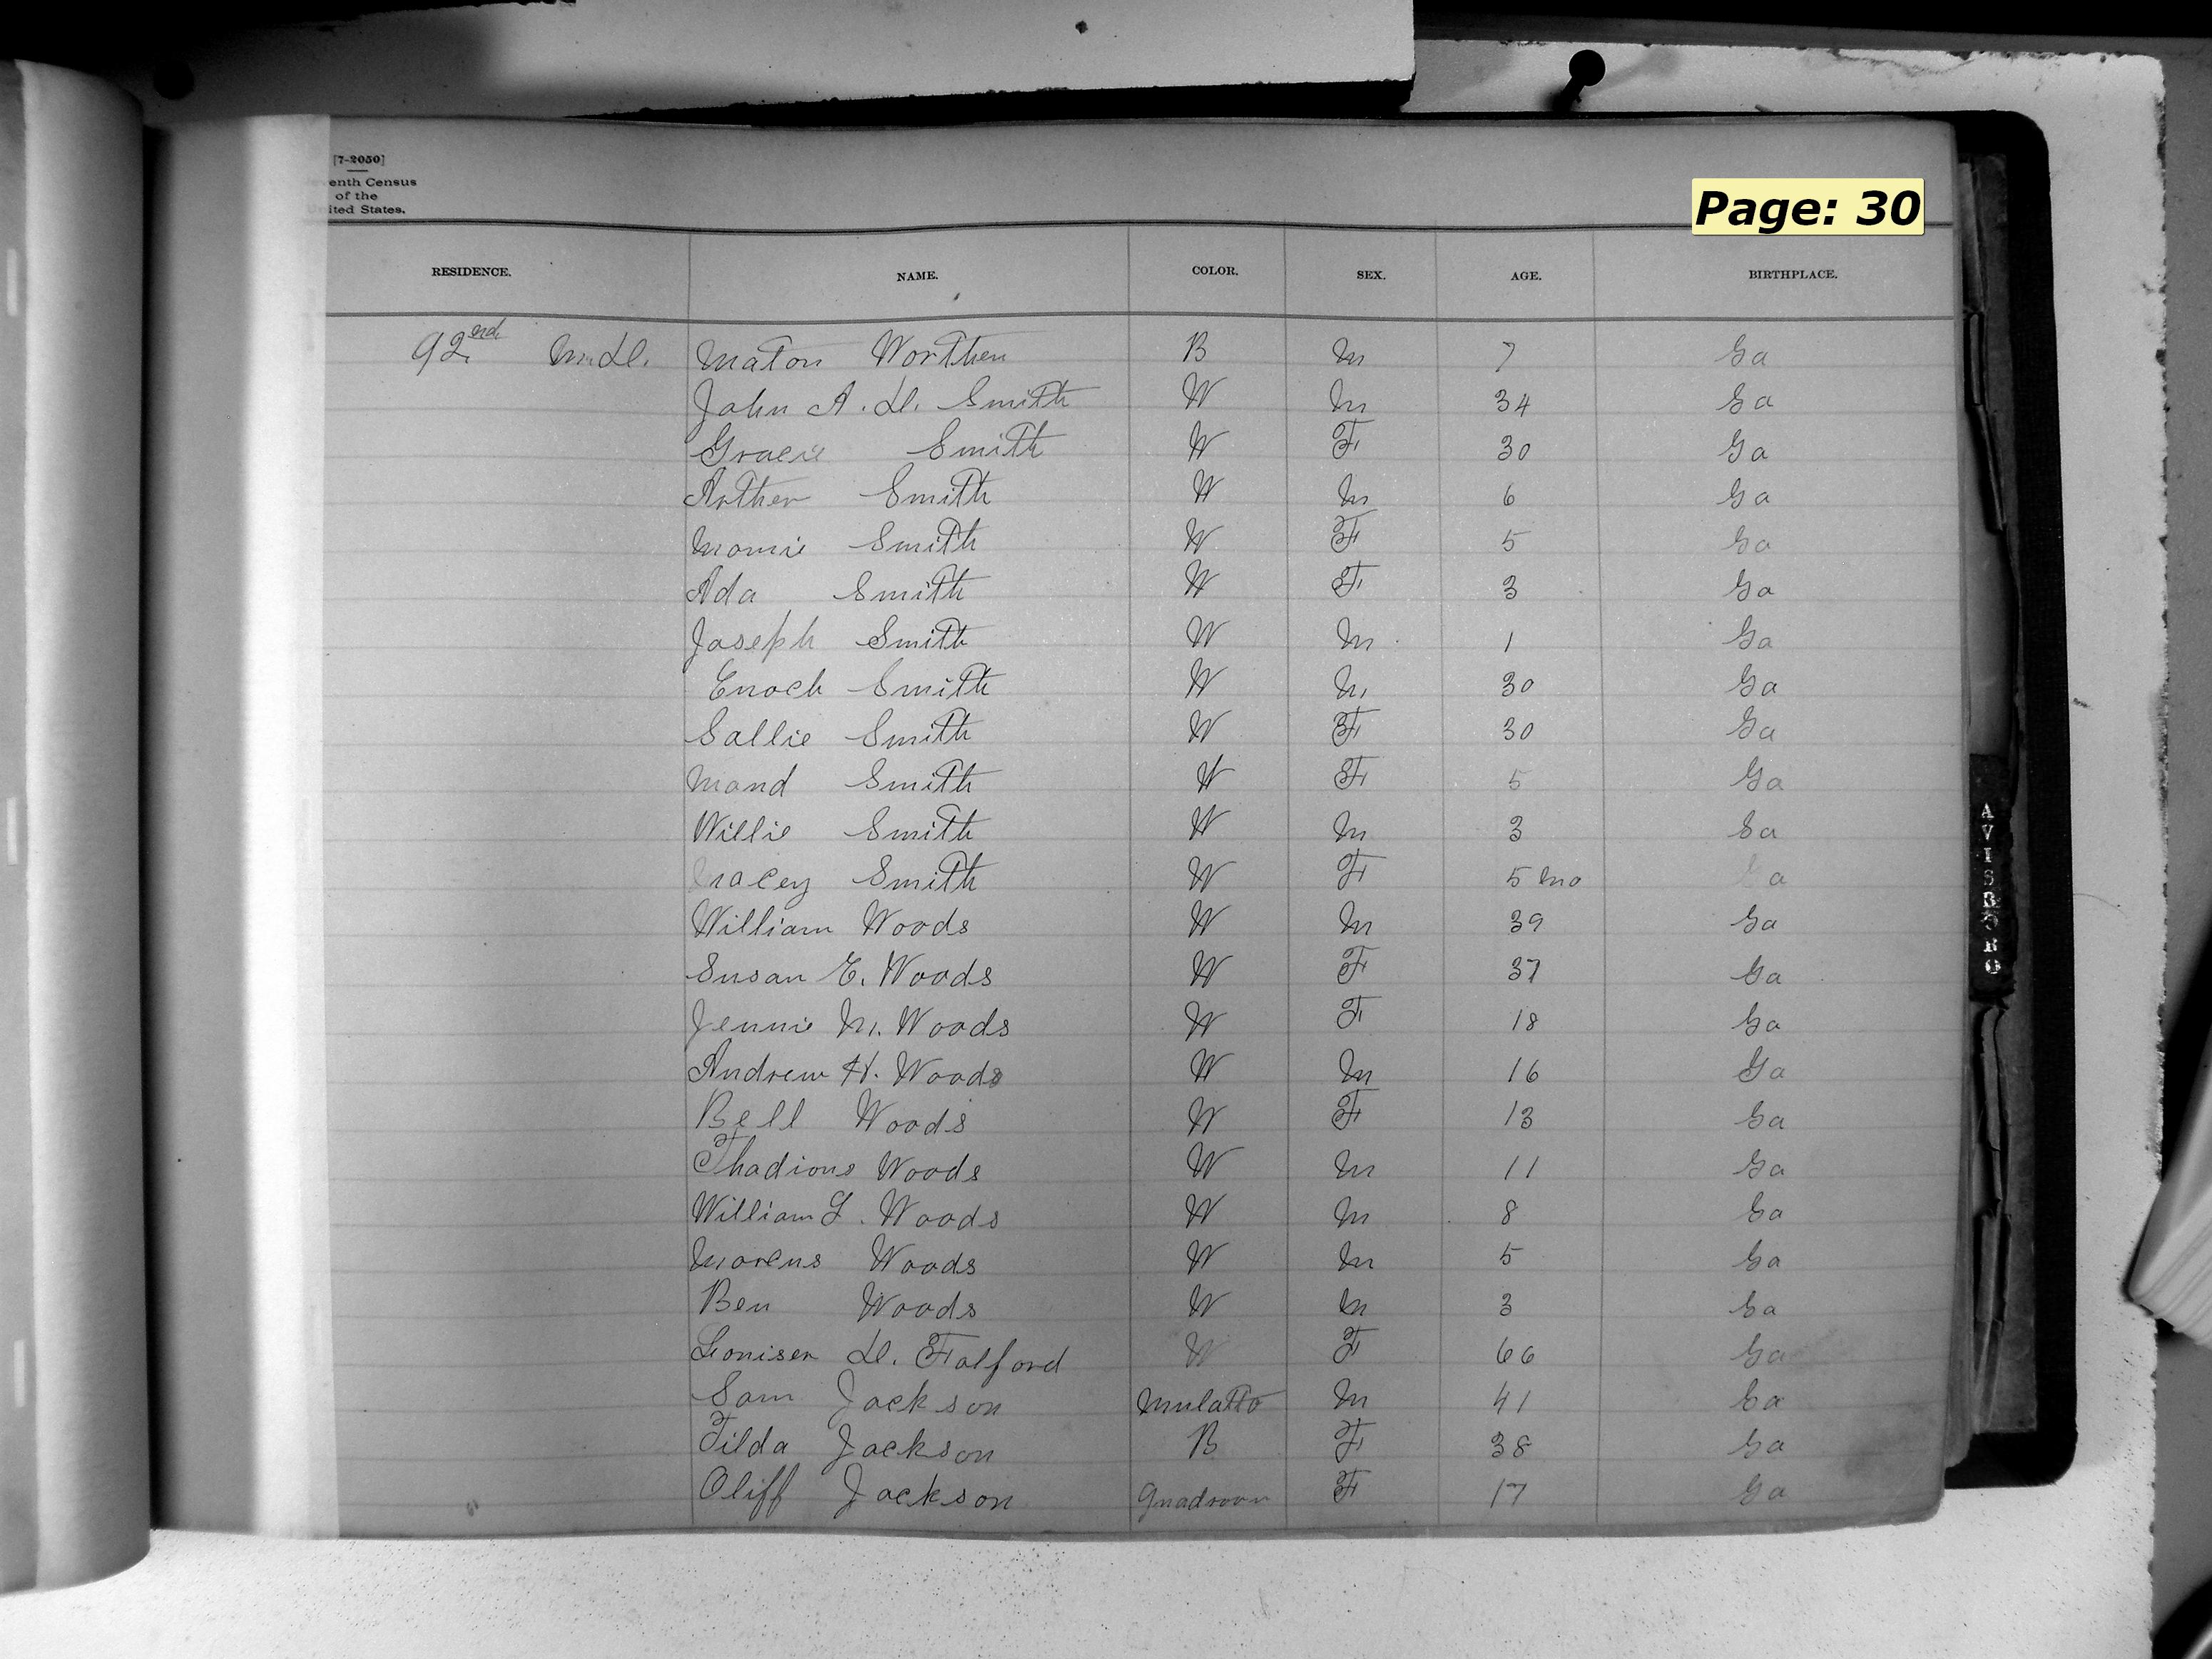 [7-2050]
enth Census
of the
ited States.
Page: 30
RESIDENCE. NAME. COLOR. SEX. AGE. BIRTHPLACE.
92nd M.D. Maton Worthen B M 7 Ga
John A. D. Smith W M 34 Ga
Gracie Smith W F 30 Ga
Arther Smith W M 6 Ga
Mamie Smith W F 5 Ga
Ada Smith W F 3 Ga
Joseph Smith W M 1 Ga
Enoch Smith W M 30 Ga
Sallie Smith W F 30 Ga
Maud Smith W F 5 Ga
Willie Smith W M 3 Ga
Smith W F 5 mo a
William Woods W M 39 Ga
Susan E. Woods W F 37 Ga
Jennie M. Woods W F 18 Ga
Andrew H. Woods W M 16 Ga
Bell Woods W F 13 Ga
Thadious Woods W M 11 Ga
William L. Woods W M 8 Ga
Marcus Woods W M 5 Ga
Ben Woods W M 3 Ga
Louiser D. Falford W F 66 Ga
Sam Jackson Mulatto M 41 Ga
Tilda Jackson B F 38 Ga
Oliff Jackson Quadroon F 17 Ga
AVISBORO